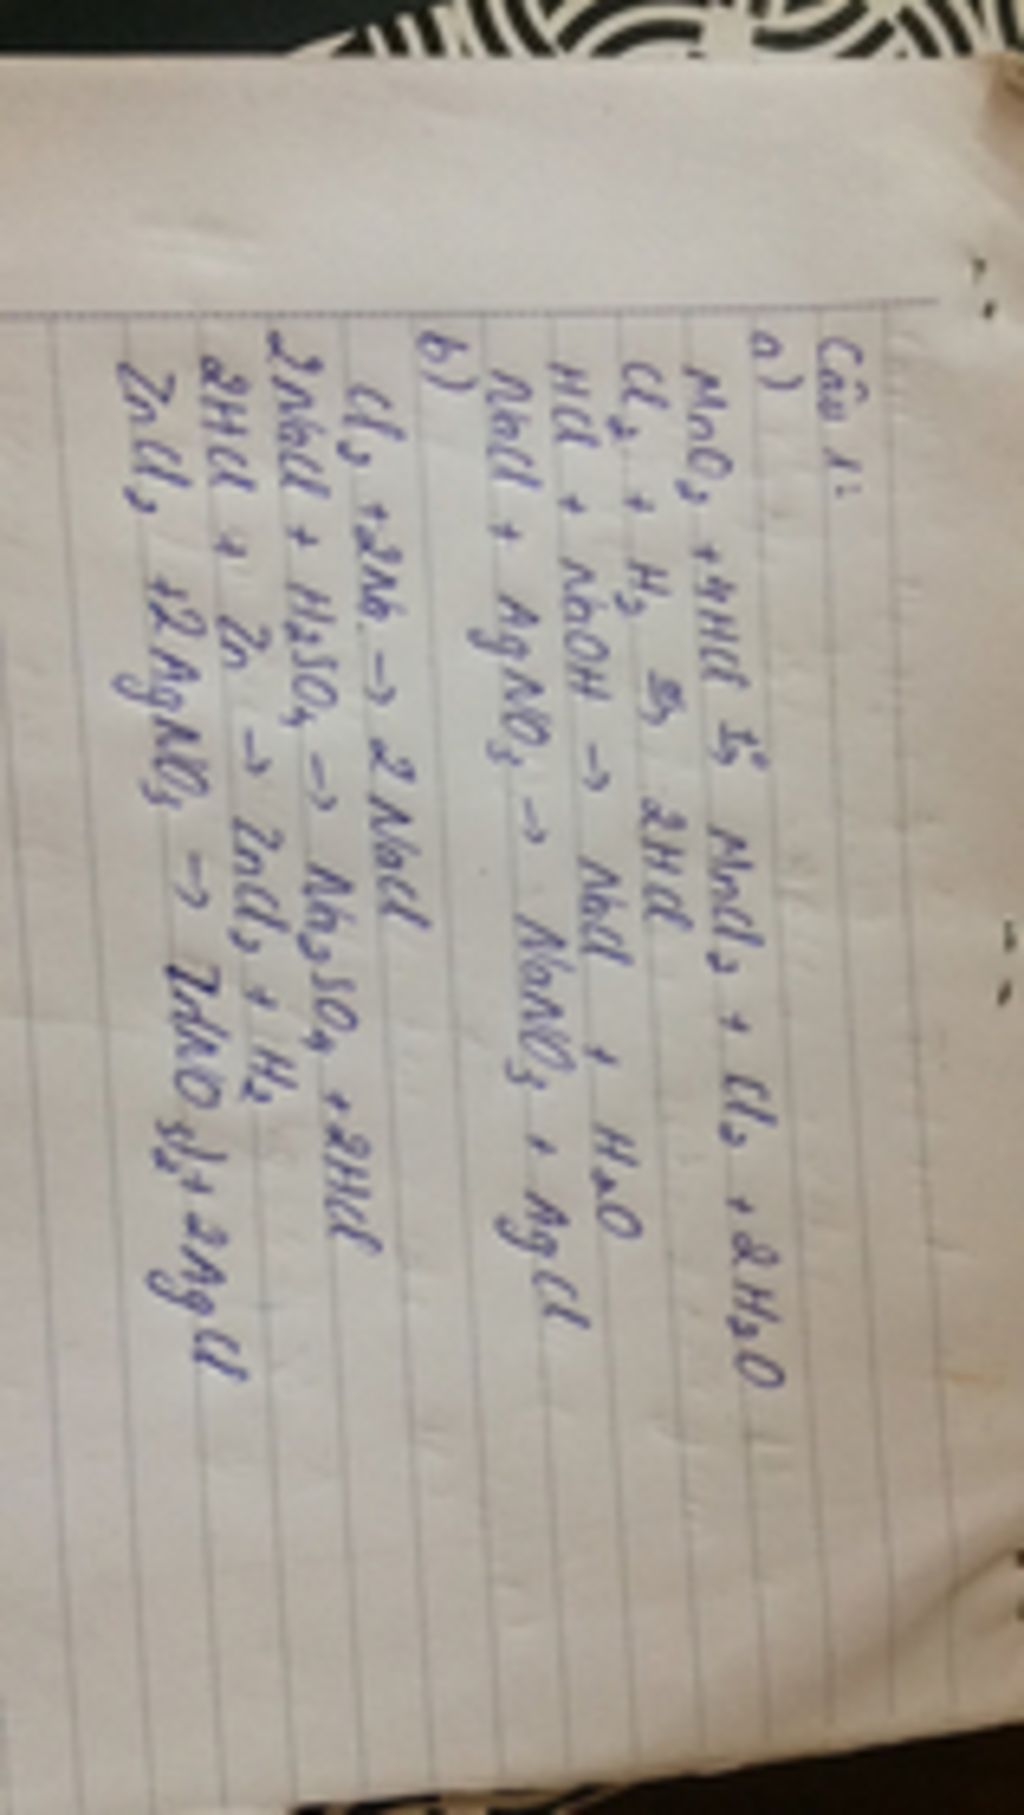 Câu 1:
a)
MnO₂ + 4HCl t°→ MnCl₂ + Cl₂ + 2H₂O
Cl₂ + H₂ → 2HCl
HCl + NaOH → NaCl + H₂O
NaCl + AgNO₃ → NaNO₃ + AgCl
b)
Cl₂ + 2Na → 2NaCl
2NaCl + H₂SO₄ → Na₂SO₄ + 2HCl
2HCl + Zn → ZnCl₂ + H₂
ZnCl₂ + 2AgNO₃ → Zn(NO₃)₂ + 2AgCl